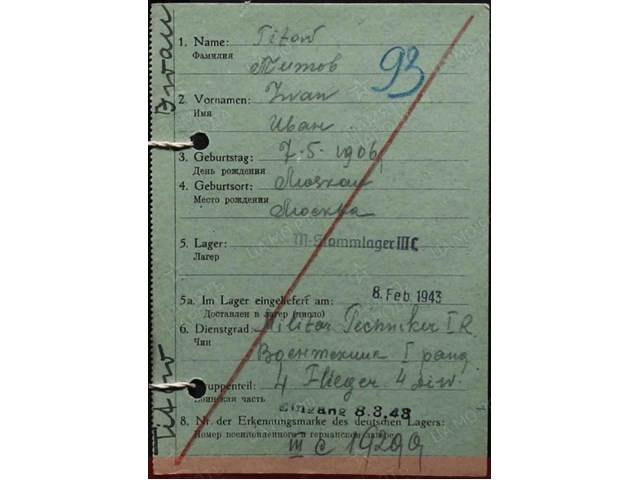 1. Name: Titow
Фамилия
Титов
93
2. Vornamen: Iwan
Имя
Иван
3. Geburtstag: 7.5.1906
День рождения
4. Geburtsort: Moskau
Место рождения
Москва
5. Lager: M-Stammlager III C
Лагерь
8. Feb. 1943
5a. Im Lager eingeliefert am:
Доставлен в лагер (число)
6. Dienstgrad: Militär Techniker I R.
Чин
Воентехник I ранг
Truppenteil: 4 Flieger 4 div.
Воинская часть
Eingang 8.3.43
8. Nr. der Erkennungsmarke des deutschen Lagers:
Номер военнопленного в германском
III C
Titow Iwan